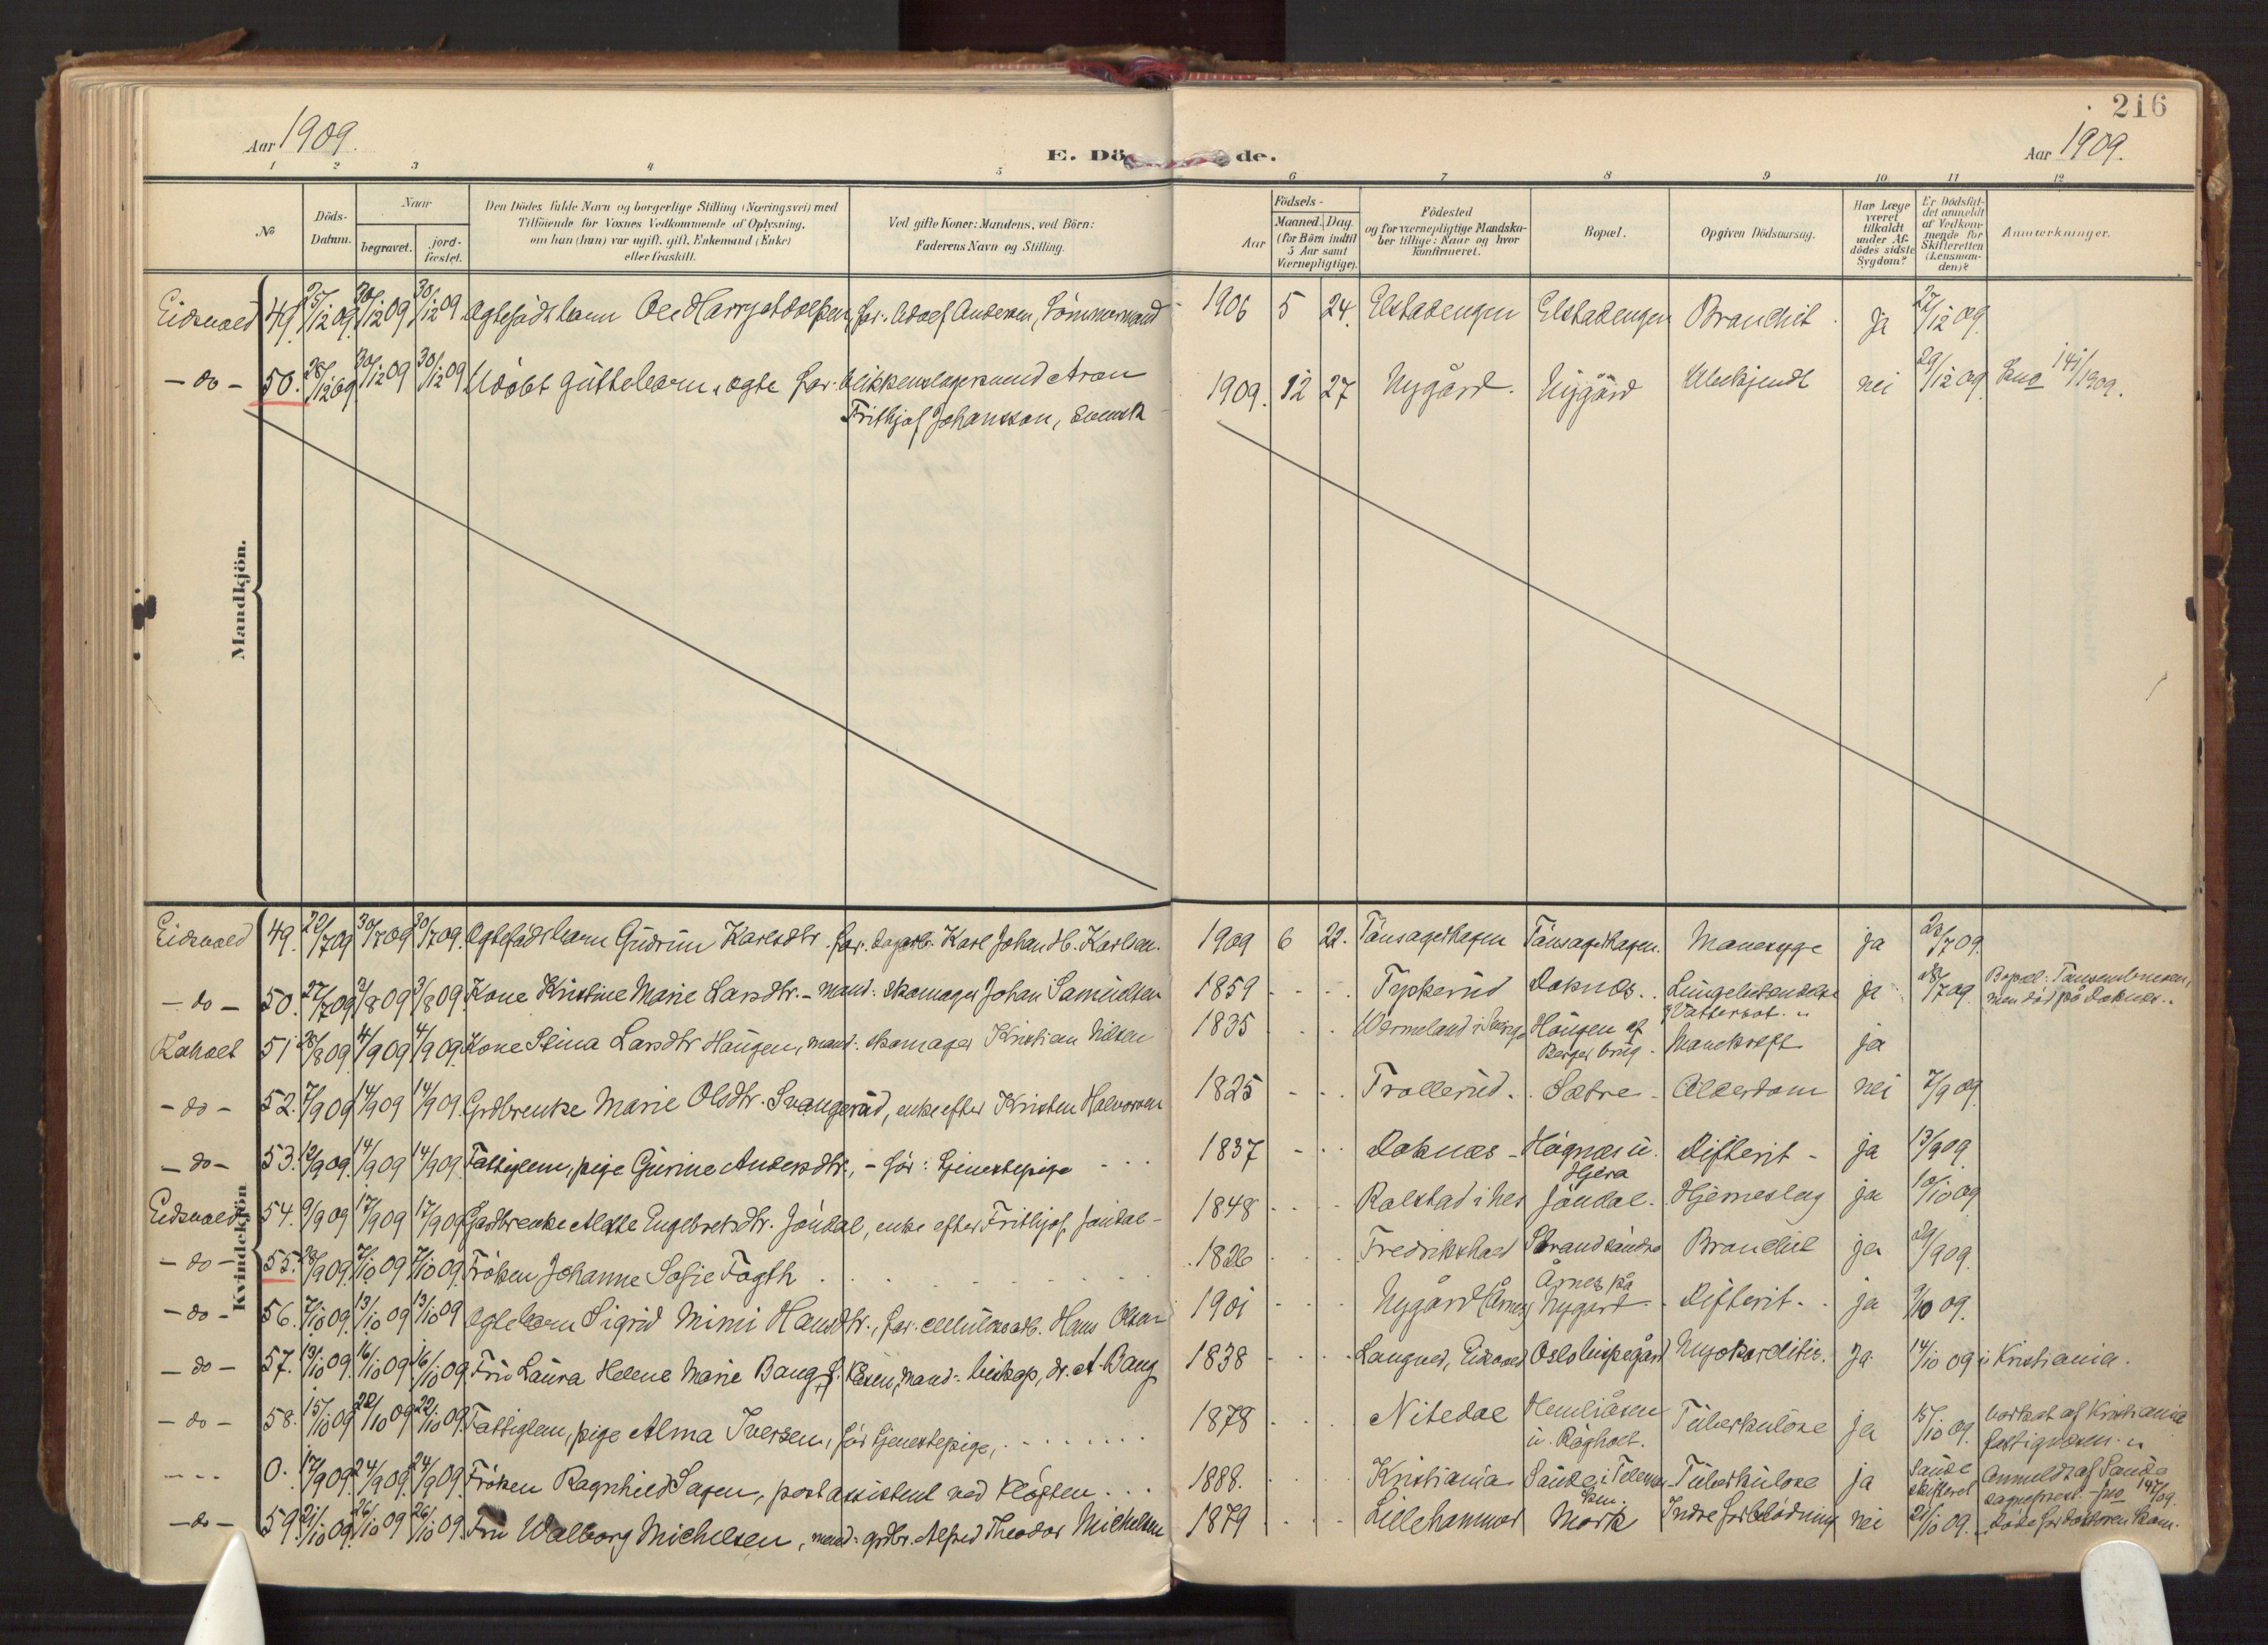 216
Aar 1909.
E. Dö de.
Aar 1909.
1 2 3 4 5 6 7 8 9 10 11 12
No
Döds-
Datum.
Naar
begravet.
jord-
fæstet.
Den Dödes fulde Navn og borgerlige Stilling (Næringsvei) med
Tilföiende for Voxnes Vedkommende af Oplysning,
om han (hun) var ugift, gift, Enkemand (Enke)
eller fraskilt.
Ved gifte Koner: Mandens, ved Börn:
Faderens Navn og Stilling.
Aar
Födsels-
Maaned. Dag.
(for Börn indtil
5 Aar samt
Værnepligtige).
Födested
og for værnepligtige Mandska-
ber tillige: Naar og hvor
konfirmeret.
Bopæl.
Opgiven Dödsaarsag.
Har Læge
været
tilkaldt
under Af-
dödes sidste
Sygdom?
Er Dödsfal-
det anmeldt
af Vedkom-
mende for
Skifteretten
(Lensman-
den)?
Anmærkninger.
Mandkjön.
Eidsvold 49. 25/12 09. 30/12 09 30/12 09 Ægtefødt barn Ole Harry Adolfsen, far: Adolf Andersen, Tömmermand 1906 5 24. Elstadengen Elstadengen Bronchit. Ja 27/12 09.
- do - 50. 28/12 09. 30/12 09 30/12 09 Udöbt guttebarn, ægte far: blikkenslagersvend Aron
Frithjof Johansson, svensk
1909. 12 27 Nygård. Nygård Ubekjendt nei 29/12 09 141/1909.
Kvindekjön
Eidsvold 49. 22/7 09 30/7 09 30/7 09. Ægtefødt barn Gudrun Karlsdtr. far: dagarb. Karl Johan H. Karlsen. 1909 6 22. Tånsagerhagen Tånsagerhagen. Mavesyge ja 23/7 09.
- do - 50. 27/7 09 3/8 09 3/8 09. Kone Kristine Marie Larsdtr. - mand: skomager Johan Samuelsen 1859 - - - Typkerud Doknæs. Lungebetændelse ja 28/7 09. Bopæl:
men död på Doknæs.
Råholt 51 28/8 09. 4/9 09 4/9 09. Kone Stina Larsdtr Haugen, mand: skomager Kristian Nilsen 1835 - - - Wermeland i Sverige Haugen af
Berger brug - Mavekræft ja
- do - 52. 7/9 09 14/9 09 14/9 09. Grdbrenke Marie Olsdtr. Svangerud, enke efter Kristen Halvorsen 1825 - - - Trollerud. Sætre - Alderdom nei 7/9 09
- do - 53. 12/9 09. 14/9 09 14/9 09. Fattiglem, pige Gurine Andersdtr, - för: tjenestepige - - - 1837 - - - Doknæs - Högnæs u.
Hjera
Difterit - ja 13/9 09.
Eidsvold 54. 9/9 09 17/9 09 17/9 09 Gardbrenke Alette Engebretsdtr. Jöndal, enke efter Frithjof Jöndal - 1848 - - - Ralstad i Nes Jöndal. Hjerneslag ja 10/10 09
- do - 55. 28/9 09. 7/10 09 7/10 09. Fröken Johanne Sofie Fogth 1826 - - - Fredrikstad Strandsundet Bronchit ja 29/9 09.
- do - 56. 7/10 09. 13/10 09 13/10 09 Ægtebarn Sigrid Mimi Hansdtr., far: cellulosearb. Hans Olsen 1901 - - - Nygård (Årnes) Årnes på
Nygård Difterit. ja 9/10 09.
- do - 57. 13/10 09. 16/10 09 16/10 09 Fru Laura Helene Marie Bang, mand: biskop, dr. A. Bang 1838 - - - Langnes, Eidsvold Oslo bispegård Myokarditis. Ja 14/10 09 i Kristiania.
- do - 58. 15/10 09 22/10 09 22/10 09. Fattiglem, pige Alma Iversen, för tjenestepige, 1878 - - - Nitedal Hemliåsen
u. Rögholt. Tuberkulose Ja 15/10 09. bortsat af Kristiania
fattigvæsen.
- - - 0. 17/9 09. 24/9 09. 24/9 09. Fröken Ragnhild Sagen, postassistent ved Klöften 1888. - - - Kristiania Saude i Telemar-
ken. Tuberkulose ja Saude
skifteret Anmeldt af Saude
sognepræst. - 147/09.
- do - 59. 21/10 09. 26/10 09 26/10 09. Fru Walborg Michelsen, mand: grdbr. Alfred Theodor Michelsen 1879 - - - Lillehammer Mork Indre forblödning nei 21/10 09. Döde för doktoren kom.